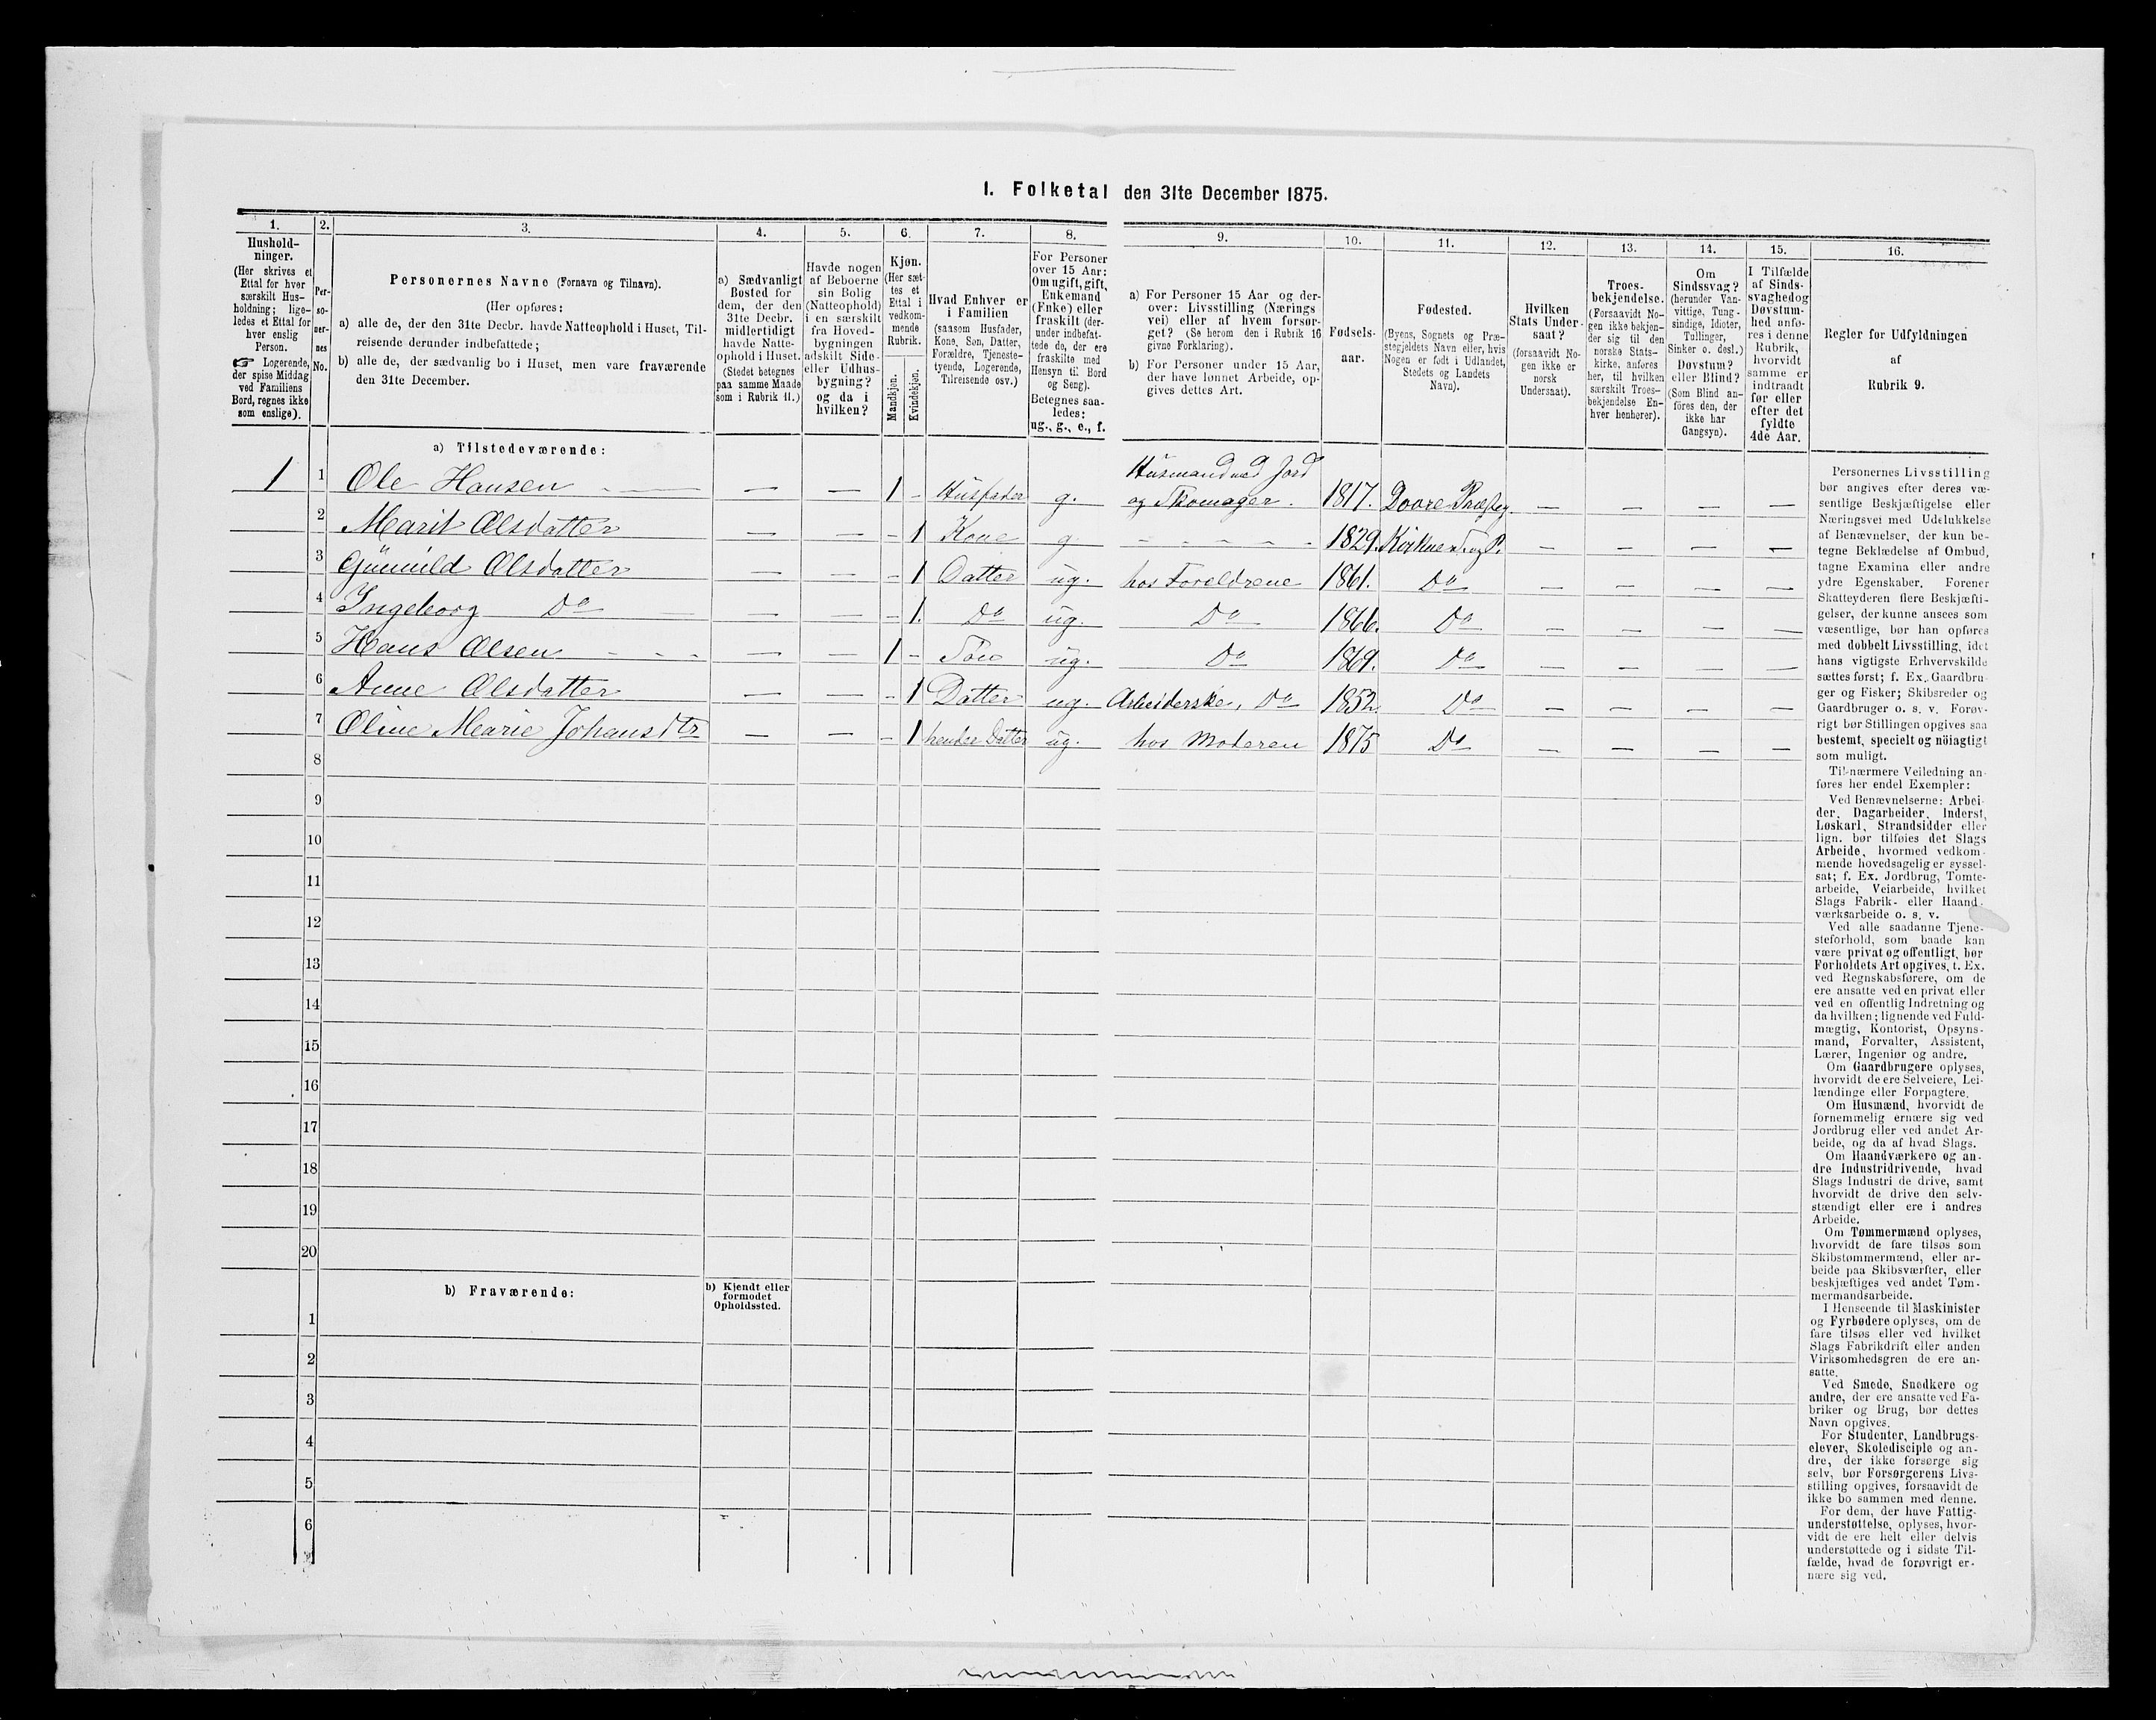 I. Folketal den 31te December 1875.
1. 2. 3. 4. 5. 6. 7. 8. 9. 10. 11. 12. 13. 14. 15. 16.
Hushold-
ninger.
(Her skrives et
Ettal for hver
særskilt Hus-
holdning; lige-
ledes et Ettal for
hver enslig
Person.
☞ Logerende,
der spise Middag
ved Familiens
Bord, regnes ikke
som enslige).
Per-
so-
ner-
nes
No.
Personernes Navne (Fornavn og Tilnavn).
(Her opføres:
a) alle de, der den 31te Decbr. havde Natteophold i Huset, Til-
reisende derunder indbefattede;
b) alle de, der sædvanlig bo i Huset, men vare fraværende
den 31te December.
a) Sædvanligt
Bosted for
dem, der den
31te Decbr.
midlertidigt
havde Natte-
ophold i Huset.
(Stedet betegnes
paa samme Maade
som i Rubrik 11.)
Havde nogen
af Beboerne
sin Bolig
(Natteophold)
i en særskilt
fra Hoved-
bygningen
adskilt Side-
eller Udhus-
bygning?
og da i
hvilken?
Kjøn.
(Her sæt-
tes et
Ettal i
vedkom-
mende
Rubrik.
Mandkjøn.
Kvindekjøn.
Hvad Enhver er
i Familien
(saasom Husfader,
Kone, Søn, Datter,
Forældre, Tjeneste-
tyende, Logerende,
Tilreisende osv.)
For Personer
over 15 Aar:
Om ugift, gift,
Enkemand
(Enke) eller
fraskilt (der-
under indbefat-
tede de, der ere
fraskilte med
Hensyn til Bord
og Seng).
Betegnes saa-
ledes:
ug., g., e., f.
a) For Personer 15 Aar og der-
over: Livsstilling (Nærings-
vei) eller af hvem forsør-
get? (Se herom den i Rubrik 16
givne Forklaring).
b) For Personer under 15 Aar,
der have lønnet Arbeide, op-
gives dettes Art.
Fødsels-
aar.
Fødested.
(Byens, Sognets og Præ-
stegjeldets Navn eller, hvis
Nogen er født i Udlandet,
Stedets og Landets
Navn).
Hvilken
Stats Under-
saat?
(forsaavidt No-
gen ikke er
norsk
Undersaat).
Troes-
bekjendelse.
(Forsaavidt No-
gen ikke bekjen-
der sig til den
norske Stats-
kirke, anføres
her, til hvilken
særskilt Troes-
bekjendelse En-
hver henhører).
Om
Sindssvag?
(herunder Van-
vittige, Tung-
sindige, Idioter,
Tullinger,
Sinker o. desl.)
Døvstum?
eller Blind?
(Som Blind an-
føres den, der
ikke har
Gangsyn).
I Tilfælde
af Sinds-
svaghed og
Døvstum-
hed anfø-
res i denne
Rubrik,
hvorvidt
samme er
indtraadt
før eller
efter det
fyldte
4de Aar.
Regler for Udfyldningen
af
Rubrik 9.
a) Tilstedeværende:
Husmand med Jord
1 1 Ole Hansen — — 1 - Husfader g. og Skomager. 1817. Dovre Præstg. — — — —
2 Marit Olsdatter — — - 1 Kone g - - - - - 1829. — — — —
3 Gunnild Olsdatter — — - 1 Datter ug. hos Foreldrene 1861. Do — — — —
4 Ingeborg Do — — - 1. Do ug. Do 1866. Do — — — —
5 Hans Olsen - - - — — 1 - Søn ug. Do 1869. Do — — — —
6 Anne Olsdatter — — - 1 Datter ug. Arbeiderske, Do 1852. Do — — — —
7 Oline Marie Johansdtr — — - 1 hendes Datter ug. hos Moderen 1875 Do — — — —
8
9
10
11
12
13
14
15
16
17
18
19
20
b) Fraværende:
b) Kjendt eller
formodet
Opholdssted.
1
2
3
4
5
6
Personernes Livsstilling
bør angives efter deres væ-
sentlige Beskjæftigelse eller
Næringsvei med Udelukkelse
af Benævnelser, der kun be-
tegne Beklædelse af Ombud,
tagne Examina eller andre
ydre Egenskaber. Forener
Skatteyderen flere Beskjæfti-
gelser, der kunne ansees som
væsentlige, bør han opføres
med dobbelt Livsstilling, idet
hans vigtigste Erhvervskilde
sættes først; f. Ex. Gaardbru-
ger og Fisker; Skibsreder og
Gaardbruger o. s. v. Forøv-
rigt bør Stillingen opgives saa
bestemt, specielt og nöiagtigt
som muligt.
Til nærmere Veiledning an-
føres her endel Exempler:
Ved Benævnelserne: Arbei-
der, Dagarbeider, Inderst,
Løskarl, Strandsidder eller
lign. bør tilføies det Slags
Arbeide, hvormed vedkom-
mende hovedsagelig er syssel-
sat; f. Ex. Jordbrug, Tomte-
arbeide, Veiarbeide, hvilket
Slags Fabrik- eller Haand-
værksarbeide o. s. v.
Ved alle saadanne Tjene-
steforhold, som baade kan
være privat og offentligt, bør
Forholdets Art opgives, t. Ex.
ved Regnskabsførere, om de
ere ansatte ved en privat eller
ved en offentlig Indretning og
da hvilken; lignende ved Fuld-
mægtig, Kontorist, Opsyns-
mand, Forvalter, Assistent,
Lærer, Ingeniør og andre.
Om Gaardbrugere oplyses,
hvorvidt de ere Selveiere, Lei-
lændinge eller Forpagtere.
Om Husmænd, hvorvidt de
fornemmelig ernære sig ved
Jordbrug eller ved andet Ar-
beide, og da af hvad Slags.
Om Haandværkere og an-
dre Industridrivende, hvad
Slags Industri de drive, samt
hvorvidt de drive den selv-
stændigt eller ere i andres
Arbeide.
Om Tømmermænd oplyses,
hvorvidt de fare tilsøs som
Skibstømmermænd, eller ar-
beide paa Skibsværfter, eller
beskjæftiges ved andet Tøm-
mermandsarbeide.
I Henseende til Maskinister
og Fyrbødere oplyses, om de
fare tilsøs eller ved hvilket
Slags Fabrikdrift eller anden
Virksomhedsgren de ere an-
satte.
Ved Smede, Snedkere og
andre, der ere ansatte ved Fa-
briker og Brug, bør dettes
Navn opgives.
For Studenter, Landbrugs-
elever, Skoledisciple og an-
dre, der ikke forsørge sig
selv, bør Forsørgerens Livs-
stilling opgives, forsaavidt de
ikke bo sammen med denne.
For dem, der have Fattig-
understøttelse, oplyses, hvor-
vidt de ere helt eller delvis
understøttede og i sidste Til-
fælde, hvad de forøvrigt er-
nære sig ved.